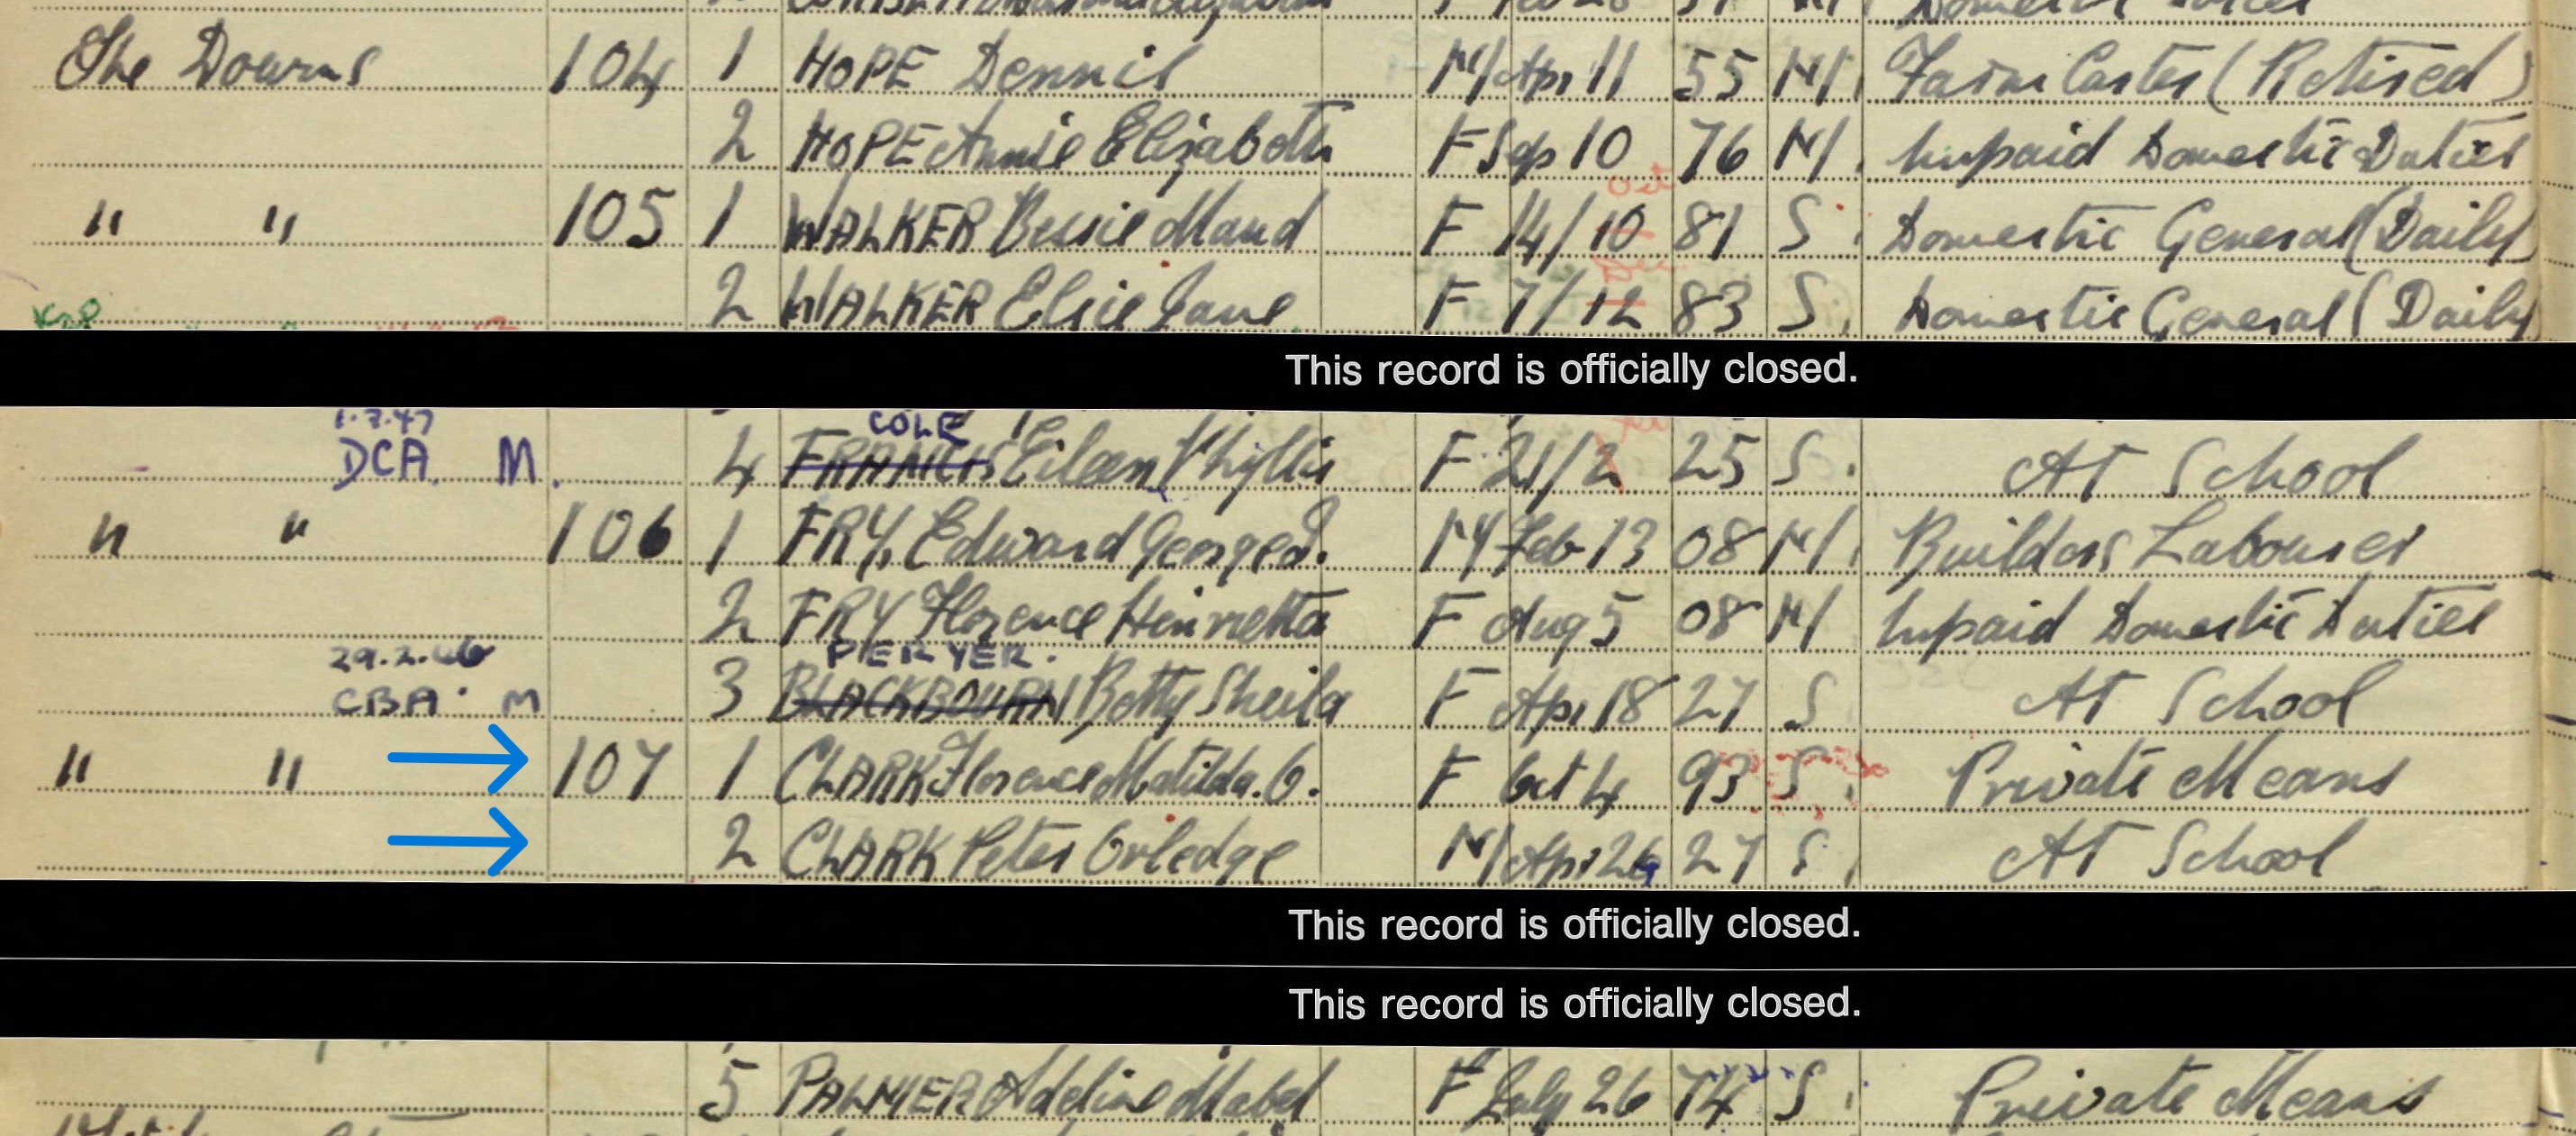 The Downs 104 1 HOPE Dennis M Apr 11 55 M Farm Carter (Retired)
2 HOPE Annie Elizabeth F Sep 10 76 M Unpaid Domestic Duties
Oct
" " 105 1 WALKER Bessie Maud F 14/10 81 S Domestic General (Daily)
Dec
2 WALKER Elsie Jane F 7/12 83 S Domestic General (Daily)
This record is officially closed.
1.7.47 COLE
DCA. M. 4 FRANCIS Eileen Phyllis F 21/2 25 S At School
" " 106 1 FRY, Edward George J. M Feb 13 08 M Builders Labourer
2 FRY Florence Henrietta F Aug 5 08 M Unpaid Domestic Duties
29.2.46 PERYER.
CBA M 3 BLACKBOURN Betty Sheila F Apr 18 27 S At School
" " 107 1 CLARK Florence Matilda. O. F Oct 4 93 S Private Means
2 CLARK Peter Orledge M Apr 26 27 S At School
This record is officially closed.
This record is officially closed.
5 PALMER Adeline Mabel F July 26 74 S Private Means